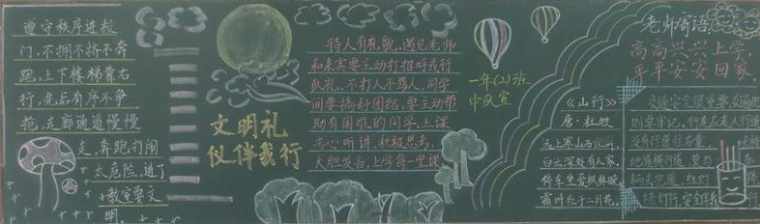 遵守秩序进校
门,不拥不挤不奔
跑,上下楼梯靠右
行,先后有序不争
抢,走廊通道慢慢
走,奔跑打闹
太危险,进了
教室要文
明
文明礼
仪伴我行
待人有礼貌,遇见老师
和来宾要主动打招呼我行
队礼,不打人不骂人,同学
间要搞好团结,要主动帮
助有困难的同学,上课
专心听讲,积极思考,
大胆发言,上好每一堂课
一年(2)班
中队宣
老师寄语
高高兴兴上学,
平平安安回家
《山行》
唐·杜牧
远上寒山石径斜,
白云深处有人家,
停车坐爱枫林晚,
霜叶红于二月花。
交通安全很重要,交通规
则牢记,行走